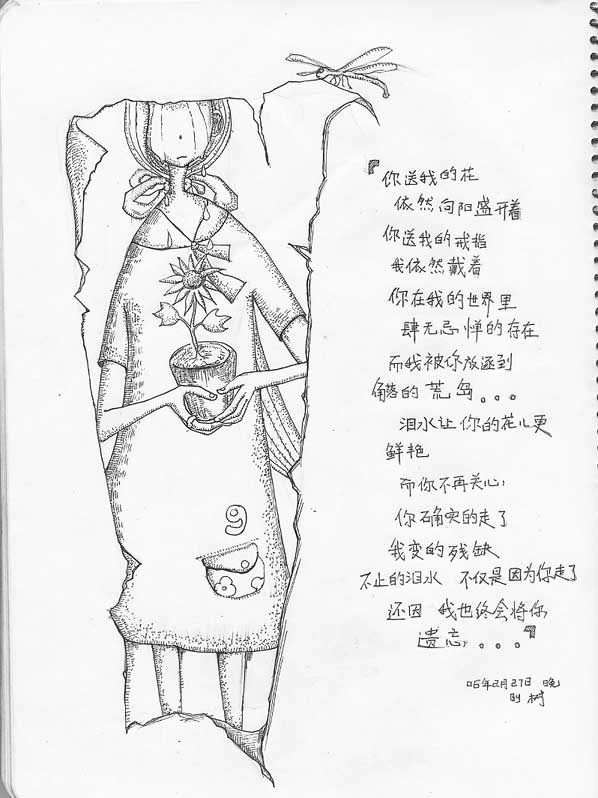 『你送我的花
依然向阳盛开着
你送我的戒指
我依然戴着
你在我的世界里
肆无忌惮的存在
而我被你放逐到
角落的荒岛。。。
泪水让你的花儿更
鲜艳
而你不再关心,
你确实的走了
我变的残缺
不止的泪水 不仅是因为你走了
还因 我也终会将你
遗忘,。。。』
05年2月27日 晚
时 树
9